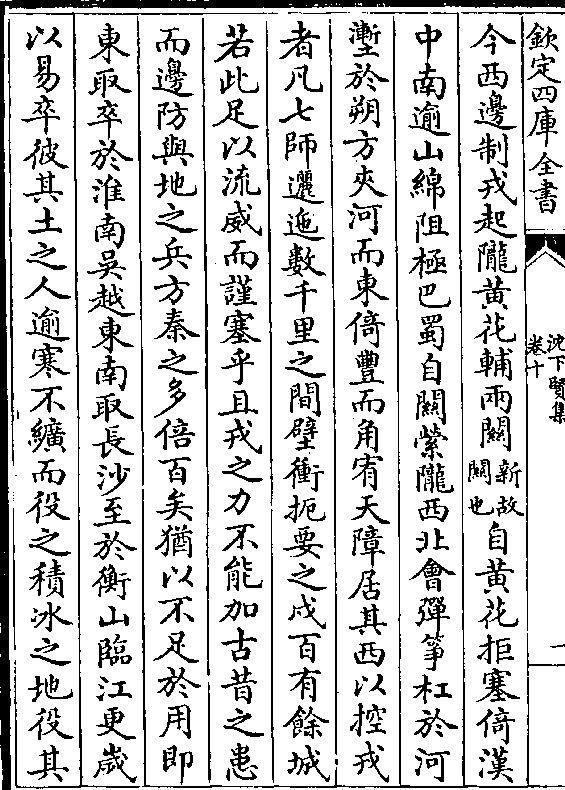 欽定四庫全書
沈下賢集
卷十
一
今西邊制戎起隴黃花輔兩關新故關也自黃花拒塞倚漢
中南逾山綿阻極巴蜀自關縈隴西北會彈筝杠於河
壍於朔方夾河而東倚豐而角宥天障居其西以控戎
者凡七師邐迤數千里之間壁衝扼要之戍百有餘城
若此足以流威而謹塞乎且戎之力不能加古昔之患
而邊防與地之兵方秦之多倍百矣猶以不足於用即
東取卒於淮南吳越東南取長沙至於衡山臨江更嵗
以易卒彼其土之人逾寒不纊而役之積冰之地役其